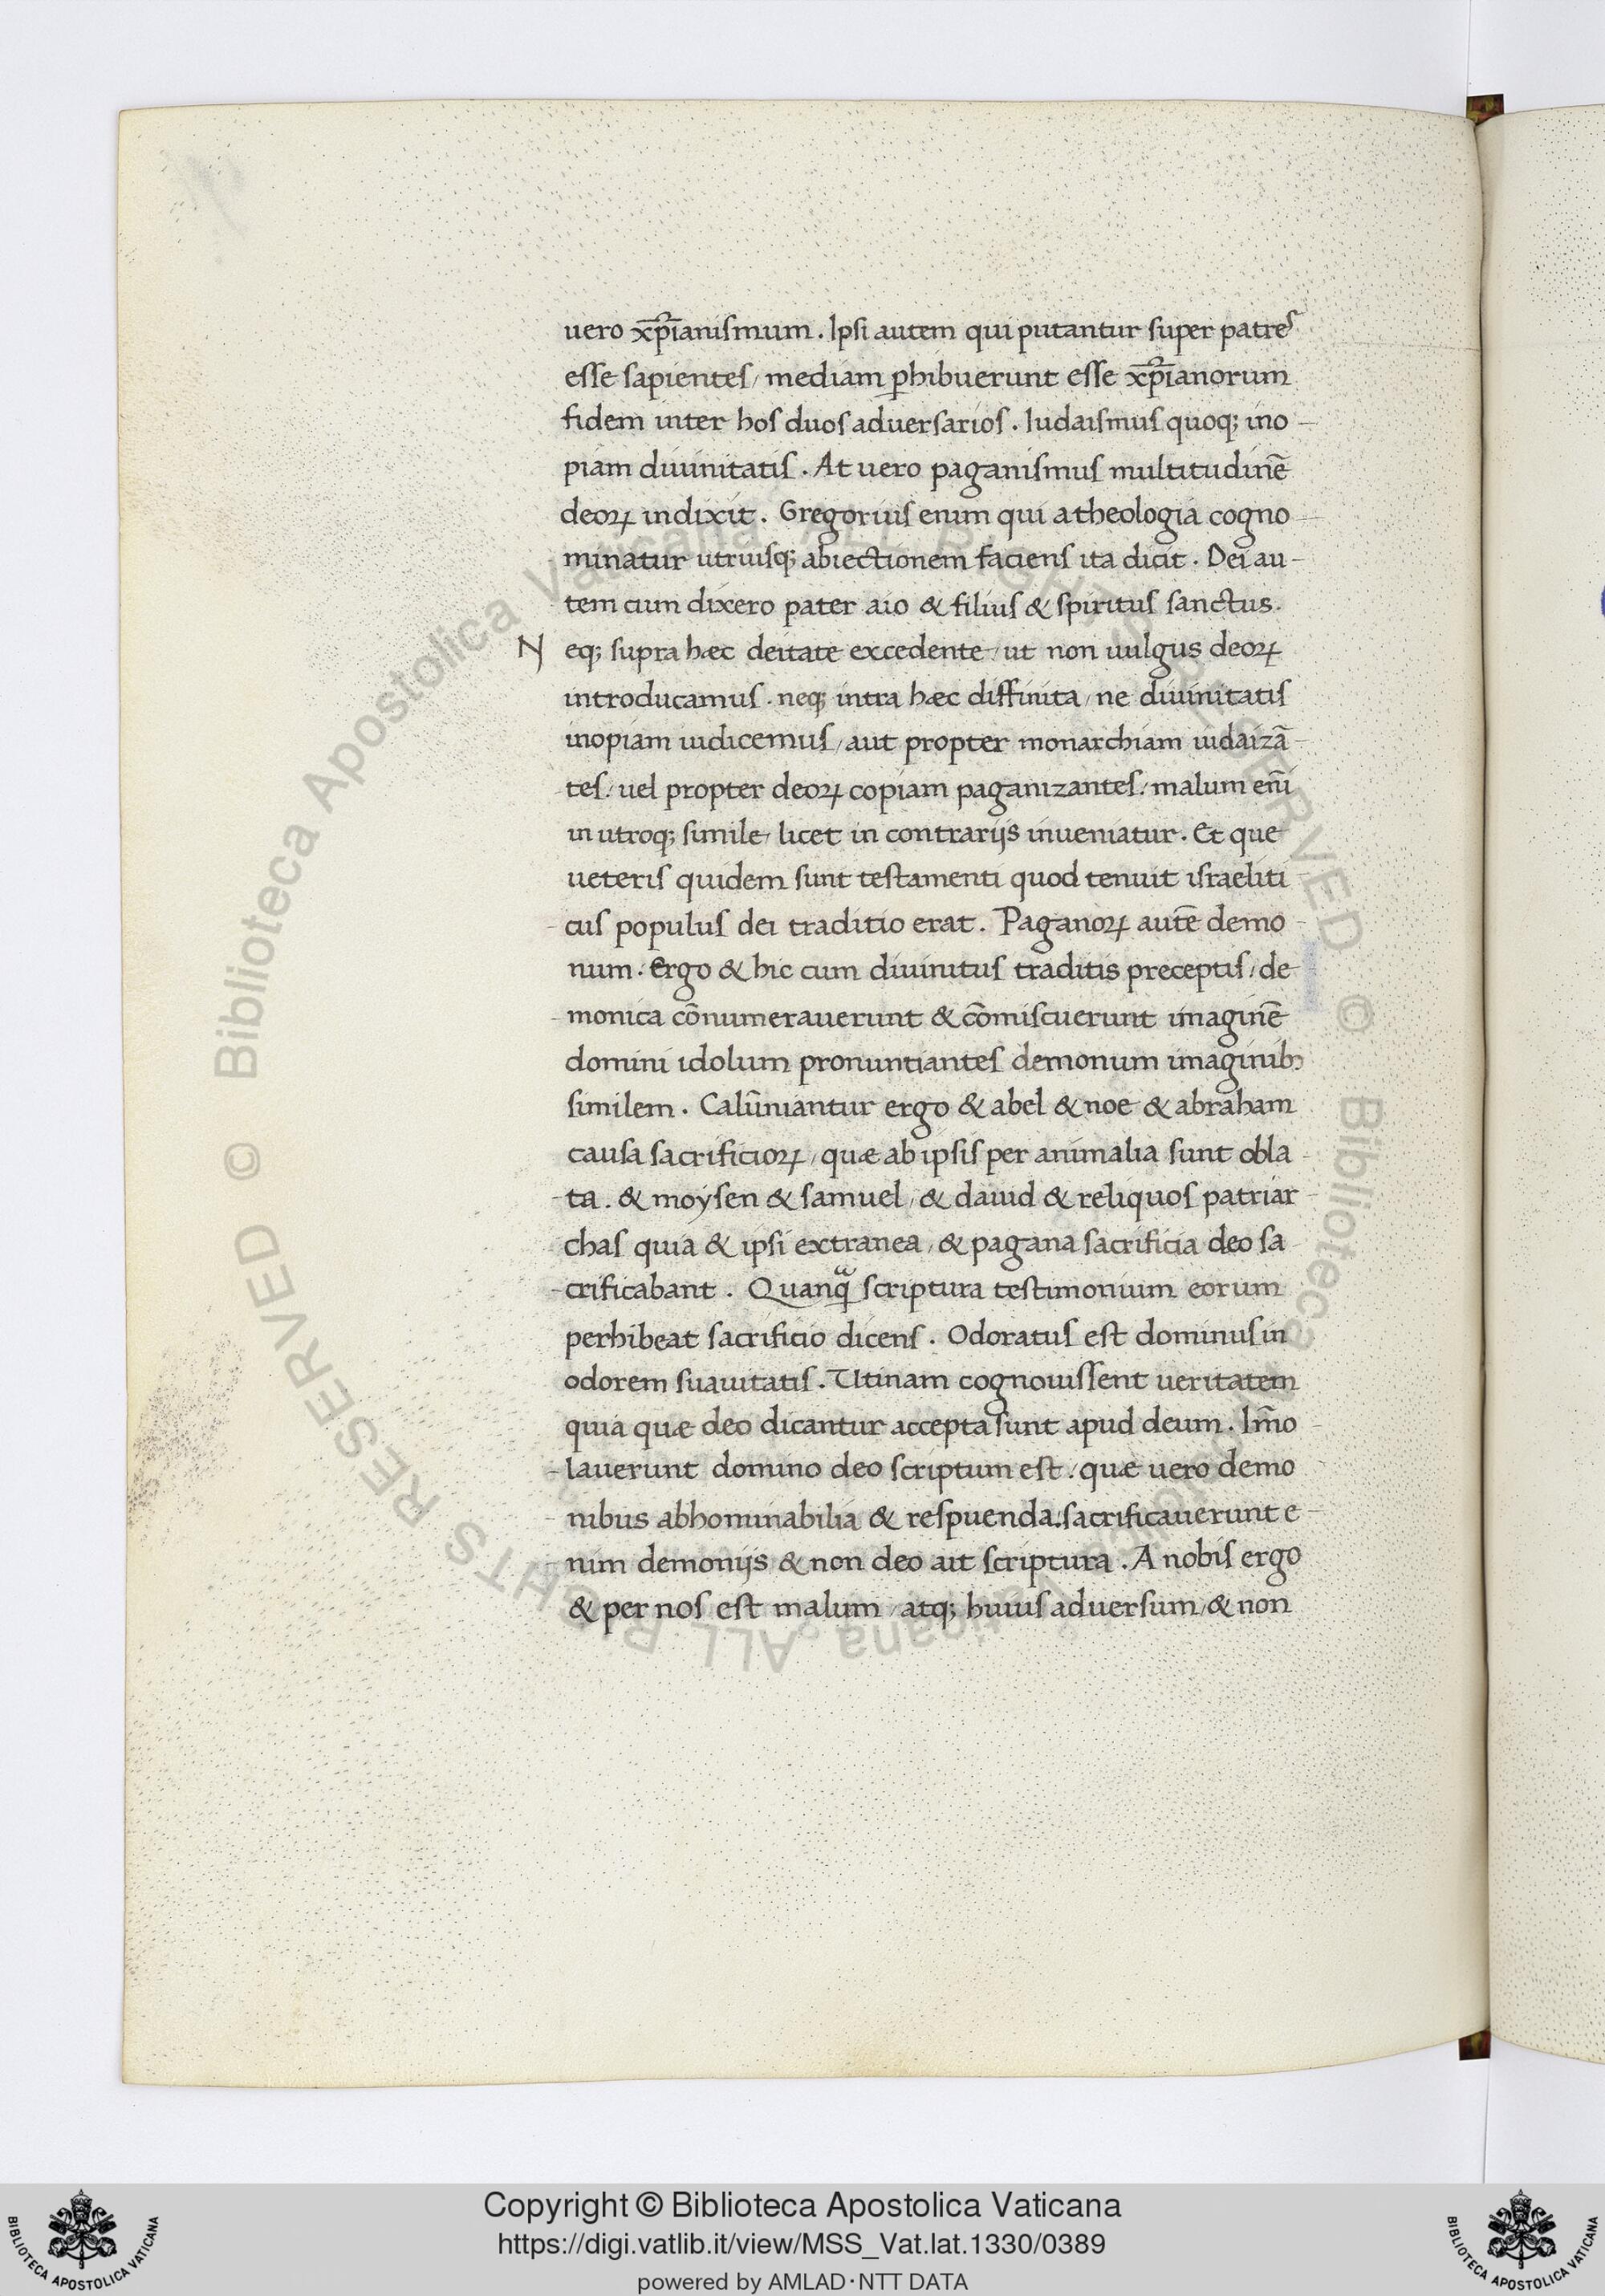 uero xp̄ianismum . Ipsi autem qui putantur super patres
esse sapientes / mediam ꝑhibuerunt esse xp̄ianorum
fidem inter hos duos aduersarios . Iudaismus quoq; ino
piam diuinitatis . At uero paganismus multitudinē
deoꝝ indixit . Gregorius enim qui a theologia cogno
minatur utriusq; abiectionem faciens ita dicit . Dei au
tem cum dixero pater aio & filius & spiritus sanctus .
N eq; supra hæc deitate excedente / ut non uulgus deoꝝ
introducamus . neq; intra hæc diffinita / ne diuinitatis
inopiam iudicemus / aut propter monarchiam iudaizā
tes / uel propter deoꝝ copiam paganizantes / malum enī
in utroq; simile / licet in contrarijs inueniatur . Et que
ueteris quidem sunt testamenti quod tenuit israeliti
cus populus dei traditio erat . Paganoꝝ autē demo
num . Ergo & hic cum diuinitus traditis preceptis / de
monica cōnumerauerunt & cōmiscuerunt imaginē
domini idolum pronuntiantes demonum imaginibꝫ
similem . Calūniantur ergo & abel & noe & abraham
causa sacrificioꝝ / quæ ab ipsis per animalia sunt obla
ta . & moysen & samuel / & dauid & reliquos patriar
chas quia & ipsi extranea / & pagana sacrificia deo sa
crificabant . Quanq̃ scriptura testimonium eorum
perhibeat sacrificio dicens . Odoratus est dominus in
odorem suauitatis . Utinam cognouissent ueritatem
quia quæ deo dicantur accepta sunt apud deum . Im̄o
lauerunt domino deo scriptum est / quæ uero demo
nibus abhominabilia & respuenda . sacrificauerunt e
nim demonijs & non deo ait scriptura . A nobis ergo
& per nos est malum / atq; huius aduersum / & non
© Biblioteca Apostolica Vaticana. ALL RIGHTS RESERVED
Copyright © Biblioteca Apostolica Vaticana
https://digi.vatlib.it/view/MSS_Vat.lat.1330/0389
powered by AMLAD·NTT DATA
BIBLIOTECA APOSTOLICA VATICANA
BIBLIOTECA APOSTOLICA VATICANA